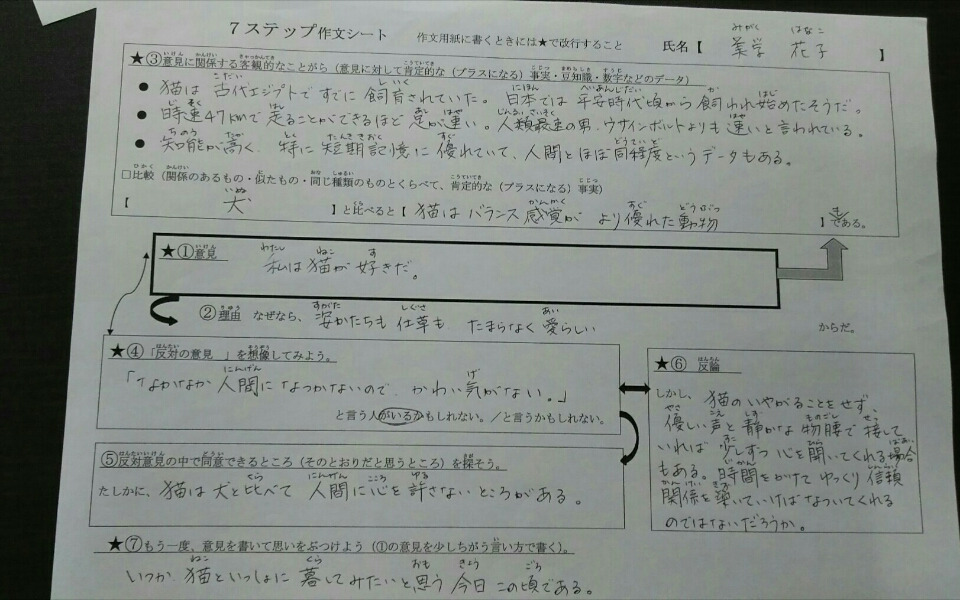 7ステップ作文シート 作文用紙に書くときには★で改行すること 氏名【 美学 花子 】
★③意見に関係する客観的なことがら（意見に対して肯定的な（プラスになる）事実・豆知識・数字などのデータ）
● 猫は 古代エジプトで すでに 飼育されていた。 日本では 平安時代頃から 飼われ始めたそうだ。
● 時速47kmで 走ることができるほど 足が速い。人類最速の男、ウサインボルトよりも 速いと言われている。
● 知能が高く、特に 短期記憶に 優れていて、人間とほぼ同程度というデータもある。
□比較（関係のあるもの・似たもの・同じ種類のものとくらべて、肯定的な（プラスになる）事実）
【 犬 】と比べると【 猫は バランス感覚が より優れた動物 】である。
★①意見 私は猫が 好きだ。
②理由 なぜなら、姿かたちも 仕草も たまらなく 愛らしい からだ。
★④「反対の意見 」を想像してみよう。
「なかなか 人間に なつかないので、かわい気がない。」
と言う人がいるかもしれない。／と言うかもしれない。
⑤反対意見の中で同意できるところ（そのとおりだと思うところ）を探そう。
たしかに、猫は 犬と比べて 人間に心を 許さない ところがある。
★⑥ 反論
しかし、猫の いやがることをせず、
優しい声と 静かな 物腰で 接して
いれば 少しずつ 心を開いてくれる場合
もある。時間をかけて ゆっくり 信頼
関係を 築いていけば なついてくれる
のではないだろうか。
★⑦もう一度、意見を書いて思いをぶつけよう（①の意見を少しちがう言い方で書く）。
いつか 猫といっしょに 暮してみたいと思う 今日 この頃である。